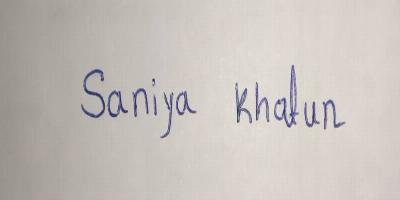 Saniya khatun